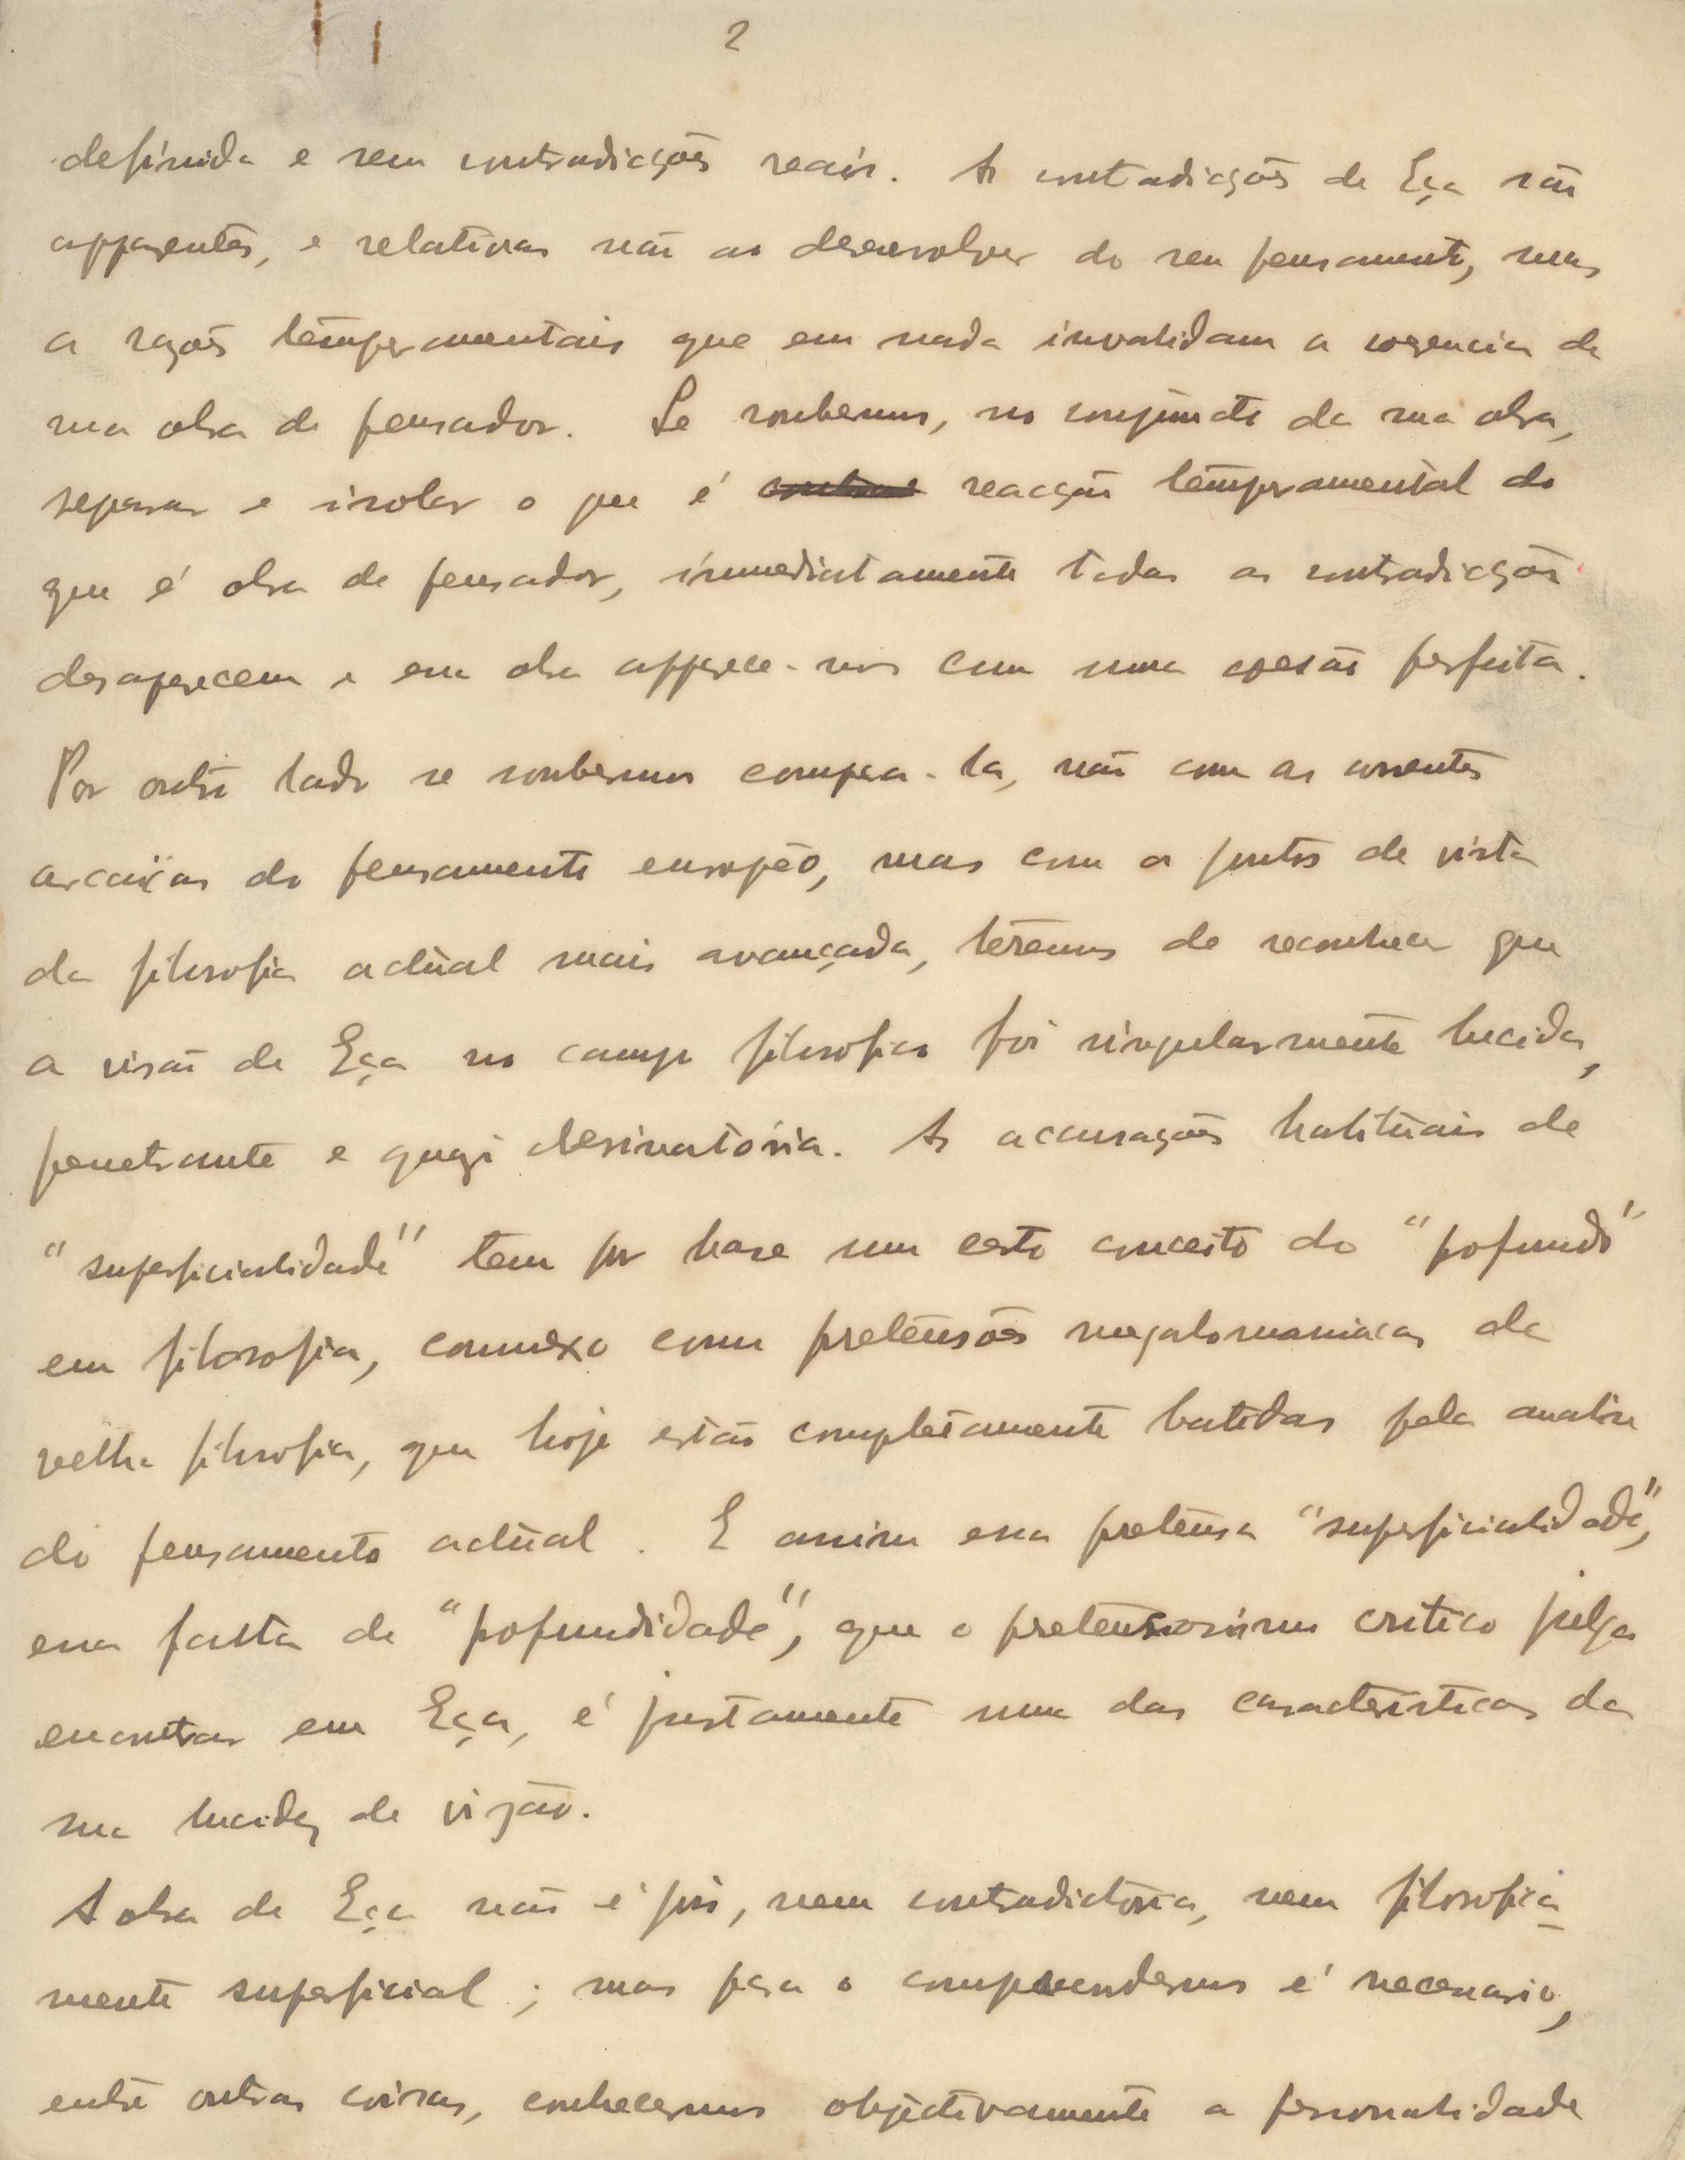 2
definida e sem contradicções reais. As contradicções de Eça são
apparentes, e relativas não ao desenvolver do seu pensamento, mas
a razões temperamentais que em nada invalidam a coerencia da
sua obra de pensador. Se soubermos, no conjuncto da sua obra,
separar e isolar o que é reacção temperamental do
que é obra de pensador, immediatamente todas as contradicções
desaparecem e essa obra apparece-nos com uma coesão perfeita.
Por outro lado se soubermos compara-la, não com as correntes
arcaicas do pensamento europêo, mas com os pontos de vista
da filosofia actual mais avançada, teremos de reconhecer que
a visão de Eça no campo filosofico foi singularmente lucida,
penetrante e quazi adivinatória. As accusações habituais de
"superficialidade" tem por base um certo conceito do "profundo"
em filosofia, connexo com pretensões megalomaniacas da
velha filosofia, que hoje estão completamente batidas pela analise
do pensamento actual. E assim essa pretensa "superficialidade",
essa falta de "profundidade", que o pretensiosismo critico julga
encontrar em Eça, é justamente uma das caracteristicas da
sua lucidez de vizão.
A obra de Eça não é pois, nem contradictoria, nem filosofica-
mente superficial; mas para o comprendermos é necessario,
entre outras coisas, conhecermos objectivamente a personalidade